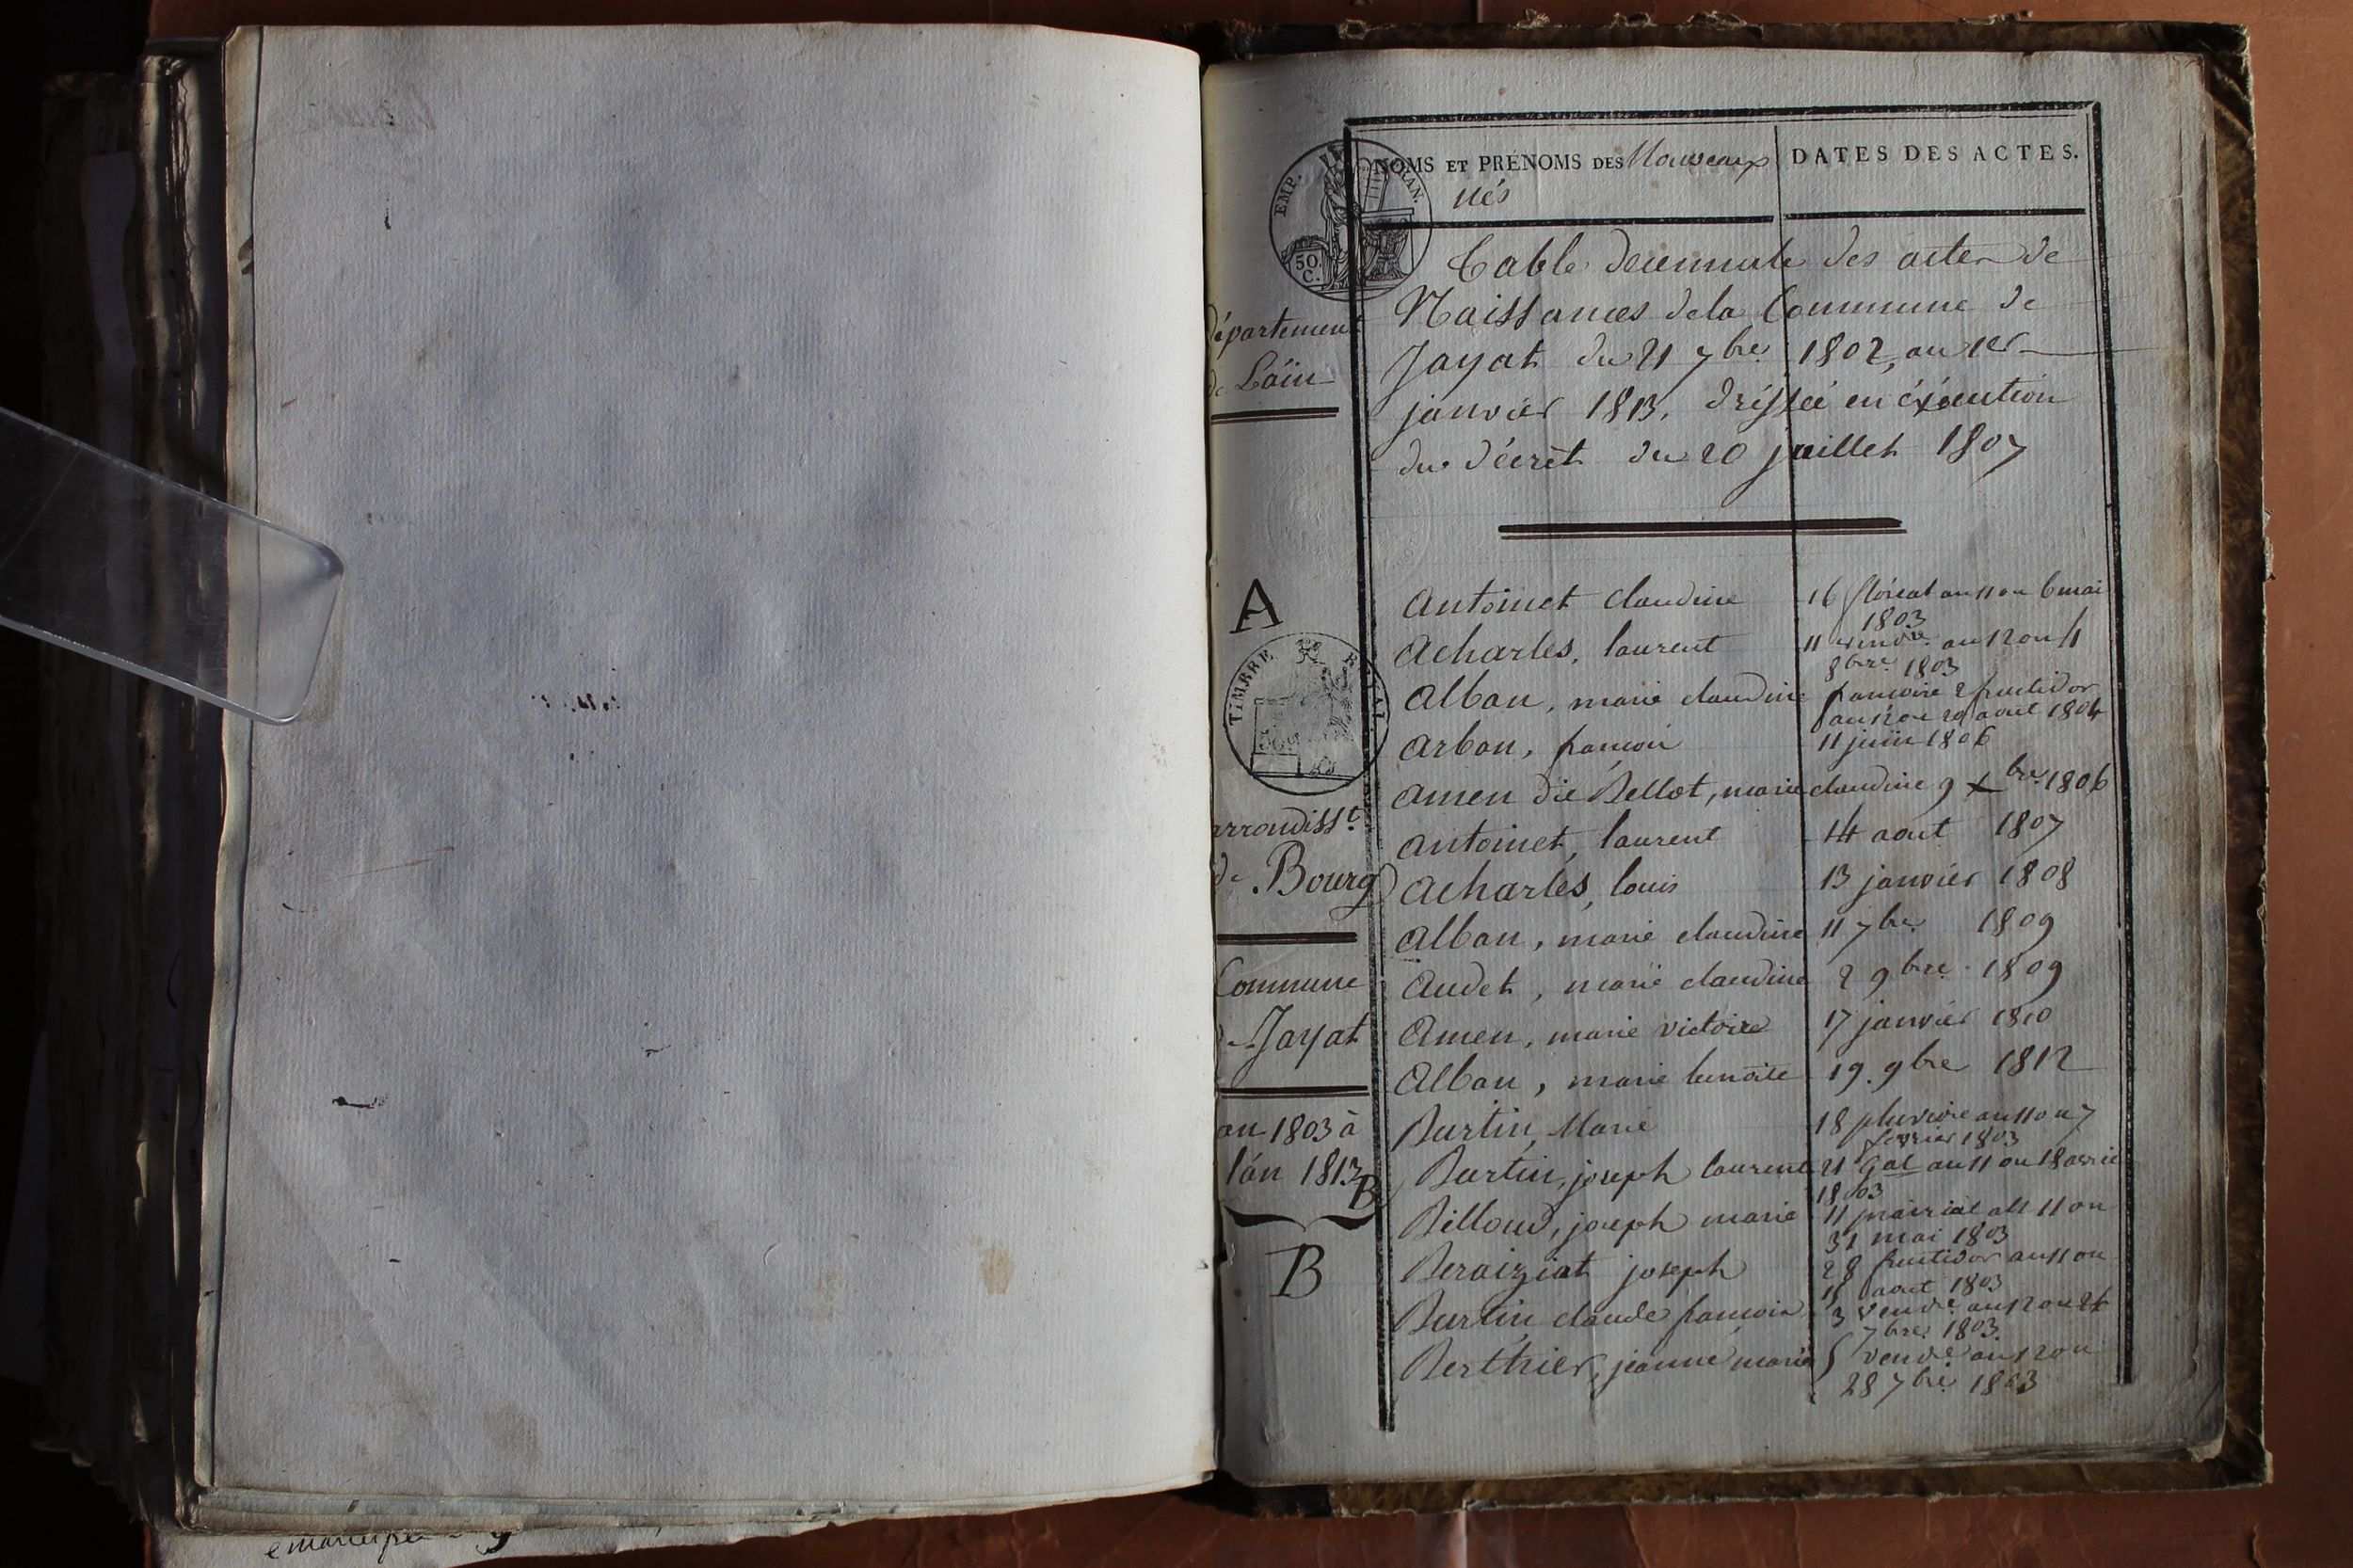 NOMS ET PRÉNOMS DES Nouveaux
nés
DATES DES ACTES.
EMP. FRAN.
50.
C.
Table decennale des actes de
Naissances de la Commune de
Jayat du 21 7bre 1802, au 1er
janvier 1813, dréssée en éxécution
du décrèt du 20 juillet 1807
Département
de L'áin
A
TIMBRE ROYAL
arrondisst
de Bourg
Commune
Jayat
an 1803 à
l'án 1813
B
B
Antoinet claudine 16 floréal an 11 ou 6 mai
1803
Acharles, laurent 11 vendre an 12 ou 4
8bre 1803
Alban, marie claudine francoise 2 fructidor
an 12 ou 20 aout 1804
Arban, francois 11 juin 1806
Amen dit Bellot, marie claudine 9 Xbre 1806
Antoinet, laurent 14 aout 1807
Acharles, louis 13 janvier 1808
Alban, marie claudine 11 7bre 1809
Audet, marie claudine 2 9bre 1809
Amen, marie victoire 17 janvier 1810
Alban, marie benoite 19. 9bre 1812
Burtin, Marie 18 pluviose an 11 ou 7
fevrier 1803
Burtin, joseph laurent 21 gal an 11 ou 18 avril
1803
Billoud, joseph marie 11 prairial an 11 ou
31 mai 1803
Beraiziat joseph 28 fructidor an 11 ou
18 aout 1803
Burtin claude francois 3 vendre an 12 ou 24
7bre 1803.
Berthier, jeanne marie 5 vendre an 12 ou
28 7bre 1803